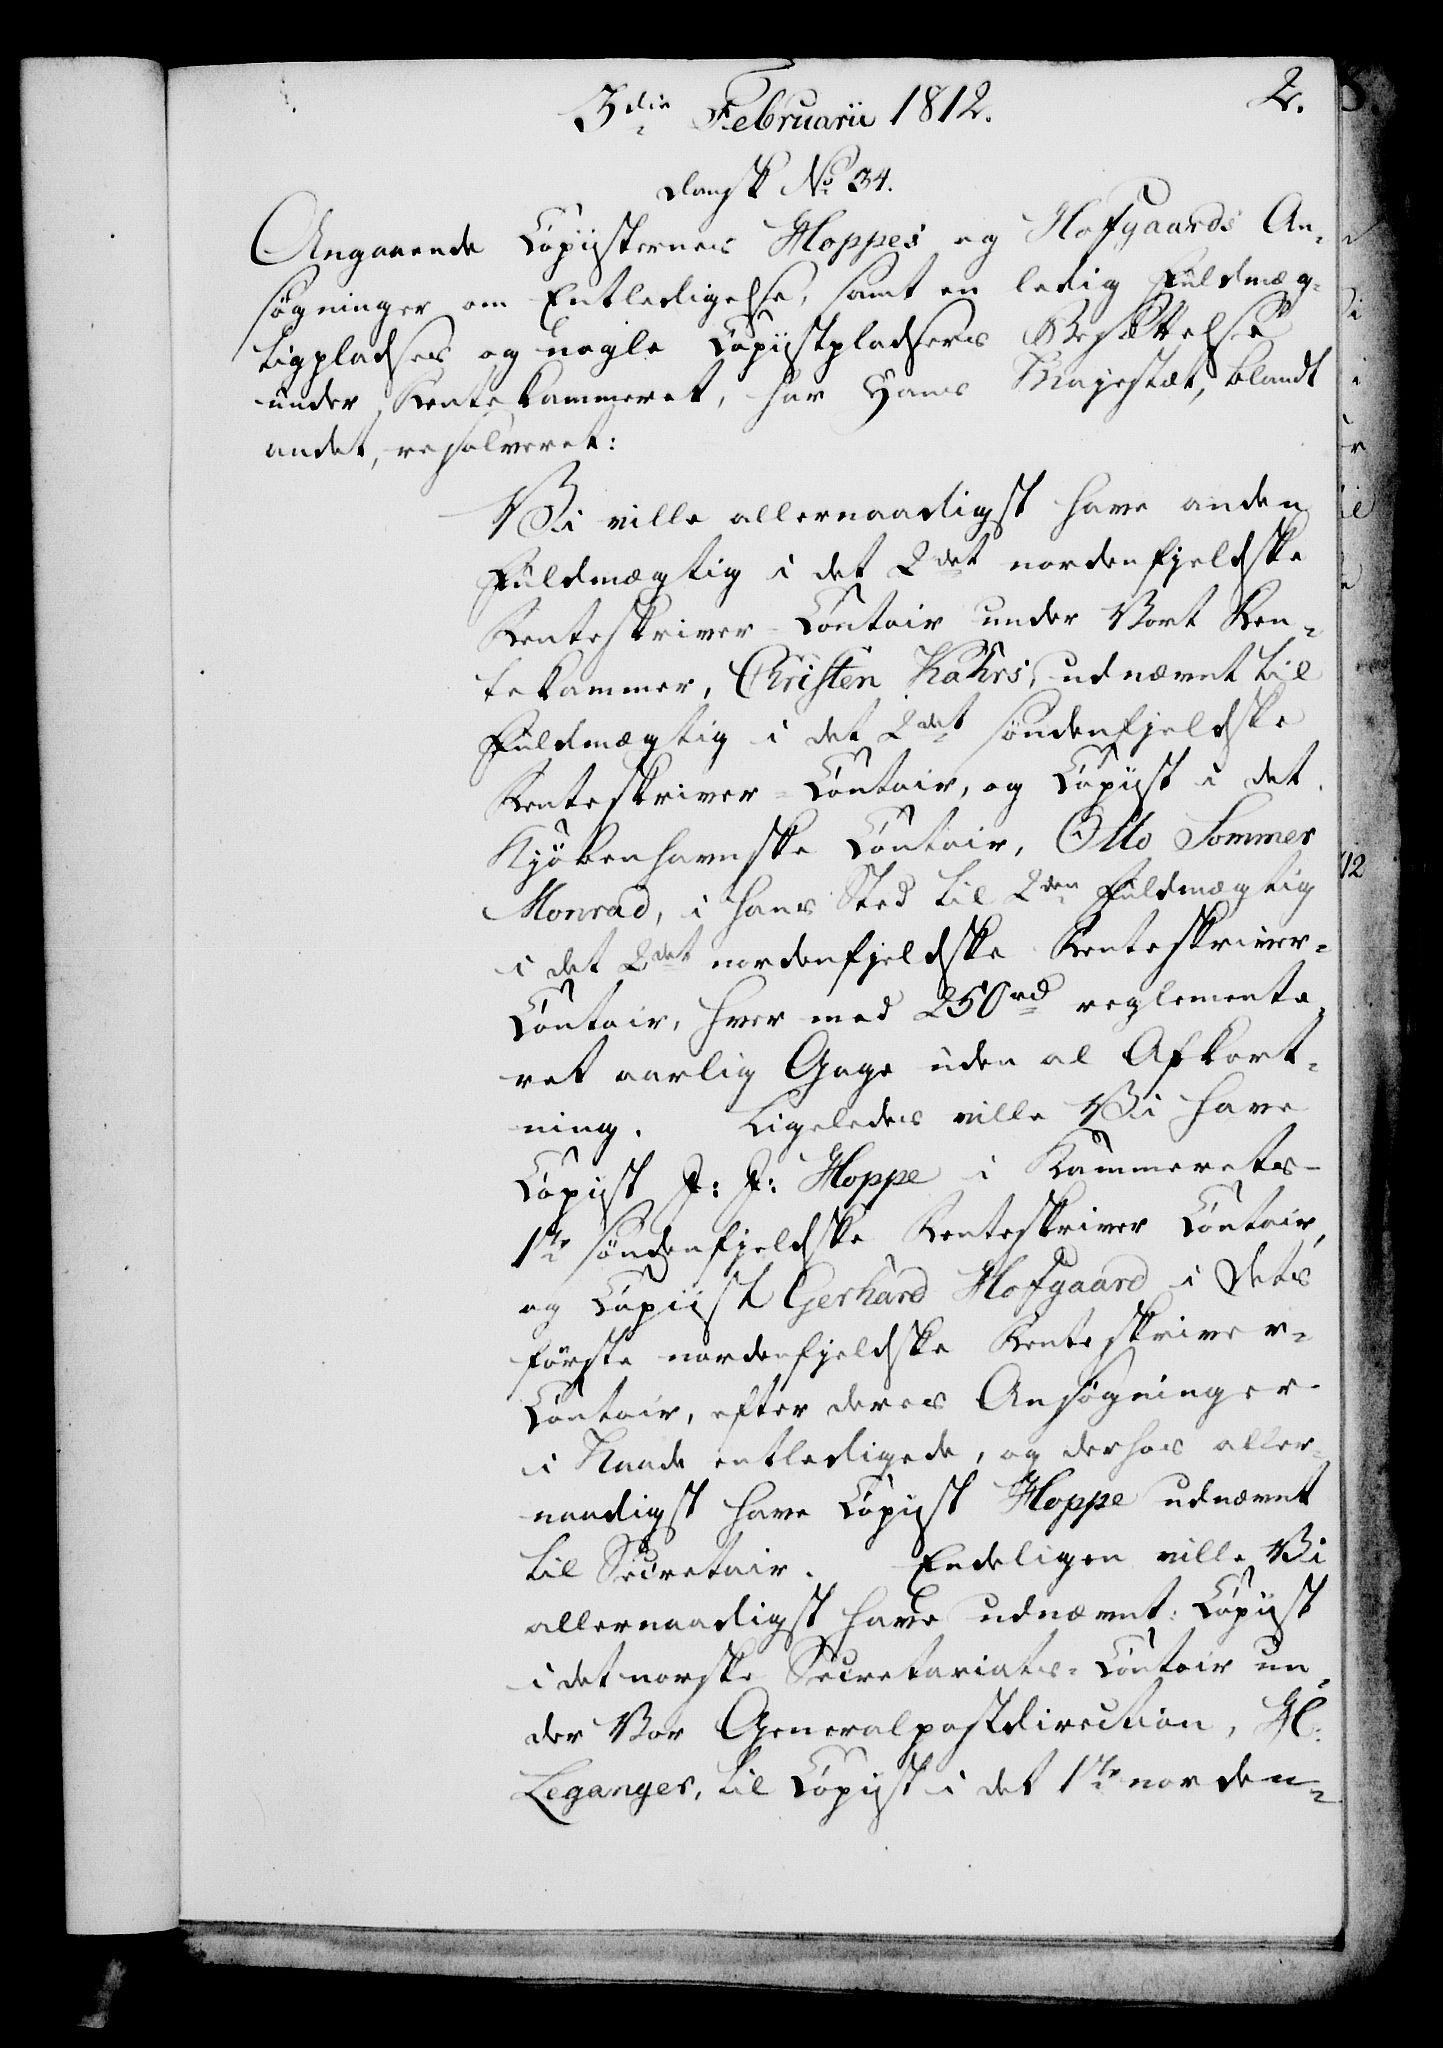 3die Februarii 1812.
2.
dansk No 34.
Angaaende Copiisternes Hoppes og Hofgaards An-
søgninger om Entledigelse, samt en ledig Fuldmæg-
tigpladses og nogle Copiistpladsers Besættelse
under Rentekammeret, har Hans Majestæt, blandt
andet, resolveret:
Vi ville allernaadigst have anden
Fuldmægtig i det 2det nordenfjeldske
Renteskriver-Contoir under Vort Ren-
tekammer, Christen Kahrs, udnævnt til
Fuldmægtig i det 2det søndenfjeldske
Renteskriver-Contoir, og Copiist i det
Kjøbenhavnske Contoir, Otto Sommer
Monrad, i hans Sted til 2den Fuldmægtig
i det 2det nordenfjeldske Renteskriver-
Contoir, hver med 250rd reglemente-
ret aarlig Gage uden al Afkort-
ning. Ligeledes ville Vi have
Copiist J: J: Hoppe i Kammerets
1ste søndenfjeldske Renteskriver Contoir,
og Copiist Gerhard Hofgaard i dets
første nordenfjeldske Renteskriver-
Contoir, efter deres Ansøgninger
i Naade entledigede, og derhos aller-
naadigst have Copiist Hoppe udnævnt
til Secretair. Endeligen ville Vi
allernaadigst have udnævnt: Copiist
i det norske Secretariats-Contoir un-
der Vor Generalpostdirection, H.
Leganger, til Copiist i det 1ste norden-